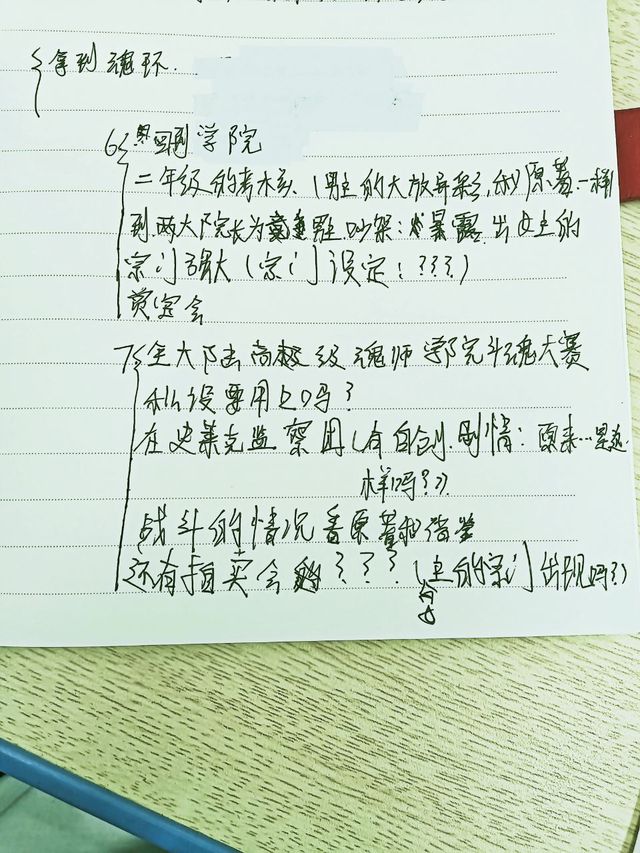 拿到魂环.
6、回到学院
二年级的考核、(男主的大放异彩,和原著一样
到两大院长为男主吵架:暴露出女主的
宗门强大(宗门设定:???)
赏宝会
7、全大陆高级魂师学院斗魂大赛
私设要用上吗?
在史莱克监察团(有自创剧情:原来…是这
样吗?)
战斗的情况看原著和借鉴
还有拍卖会的???(女主的宗门出现吗?)